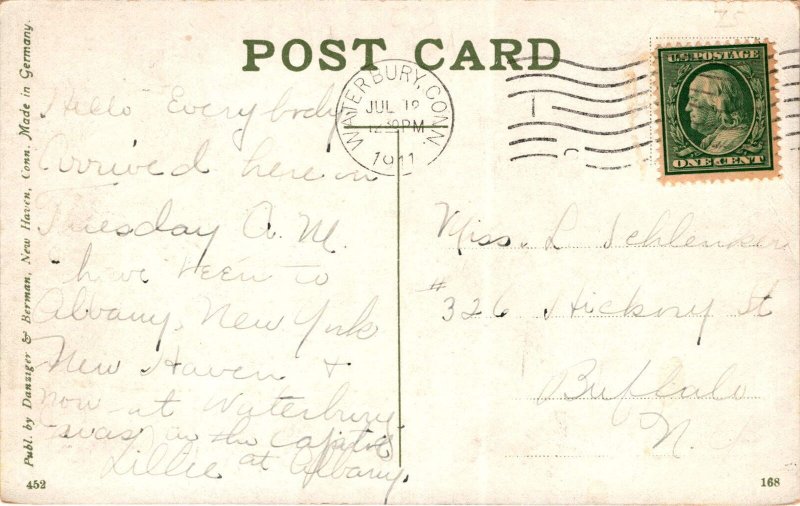 POST CARD
Publ. by Danziger & Berman, New Haven, Conn. Made in Germany.
WATERBURY, CONN.
JUL 19
12 30 PM
1911
U.S. POSTAGE
ONE CENT
Hello Everybody
Arrived here on
Tuesday A. M.
have been to
Albany, New York
New Haven &
now at Waterbury
was in the Capitol
Lillie at Albany.
Miss. L Schlenker
# 326 Hickory St
Buffalo
N.
452
168